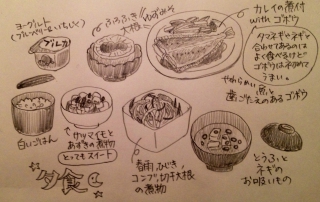 ヨーグルト
(ブルーベリー&いちじく)
ブルガ
ふろふき大根
ゆずみそ
カレイの煮付
with ゴボウ
タマネギやネギと
合わせてあるのは
よく食べるけど
ゴボウは初めて
うまい。
やわらかい魚と
歯ごたえのあるゴボウ
白いごはん
サツマイモと
あずきの煮物
とってもスイート
春雨、ひじき、
コンブ、切干大根
の煮物
とうふと
ネギの
お吸いもの
夕食